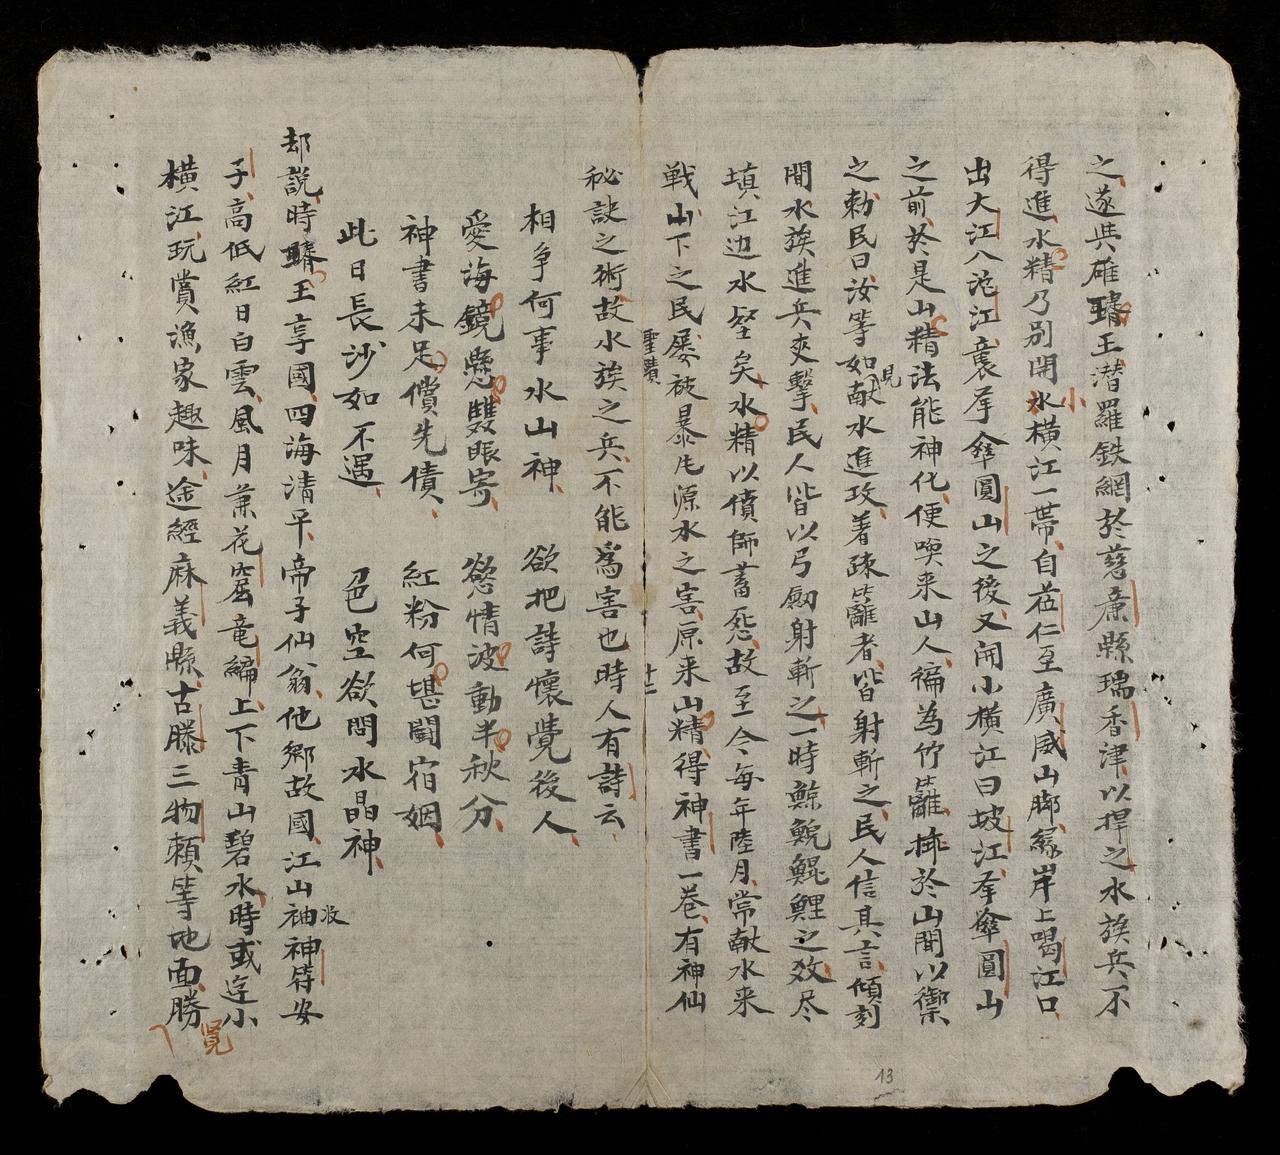 之遂與碓璿王潛羅鉄網於慈廉縣瑞香津以捍之水族兵不
得進水精乃別開小水橫江一帶自莅仁至廣威山腳緣岸上喝江口
出大江入沱江襄奔傘圓山之後又開小橫江曰坡江奔傘圓山
之前於是山精法能神化便喚来山人編為竹籬揷於山間以禦
之勅民曰汝等如見献水進攻着疎籬者皆射斬之民人信其言傾刻
間水族進兵夾擊民人皆以弓劒射斬之一時鯨鯢鯤鯉之效尽
填江边水壑矣水精以僨師蓄怨故至今每年陸月常献水来
戦山下之民屡被暴尾源水之害原来山精得神書一巻有神仙
聖蹟
十二
秘訣之術故水族之兵不能為害也時人有詩云
相争何事水山神 欲把詩懷覺後人
愛海鏡懸雙眼寄 慾情波動半秋分
神書未足償先債 紅粉何堪鬪宿姻
此日長沙如不遇 色空欲問水晶神
却說時璿王享國四海清平帝子仙翁他郷故國江山袖神符安
子高低紅日白雲風月兼花窟竜編上下青山碧水時或迳小
橫江玩賞漁家趣味途經麻義縣古滕三物頼等地面勝
覽
13